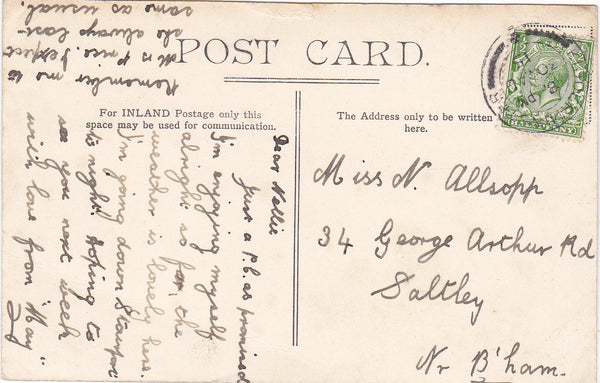 POST CARD.
For INLAND Postage only this
space may be used for communication.
The Address only to be written
here.
Dear Nellie
Just a P.C. as promised
I'm enjoying myself
alright so far the
weather is lovely here.
I'm going down
to night. Hoping to
see you next week
with love from "May"
Remember me to
Mrs Price. I expect
she always last
same as usual.
Miss N. Allsopp
34 George Arthur Rd
Saltley
Nr B'ham.